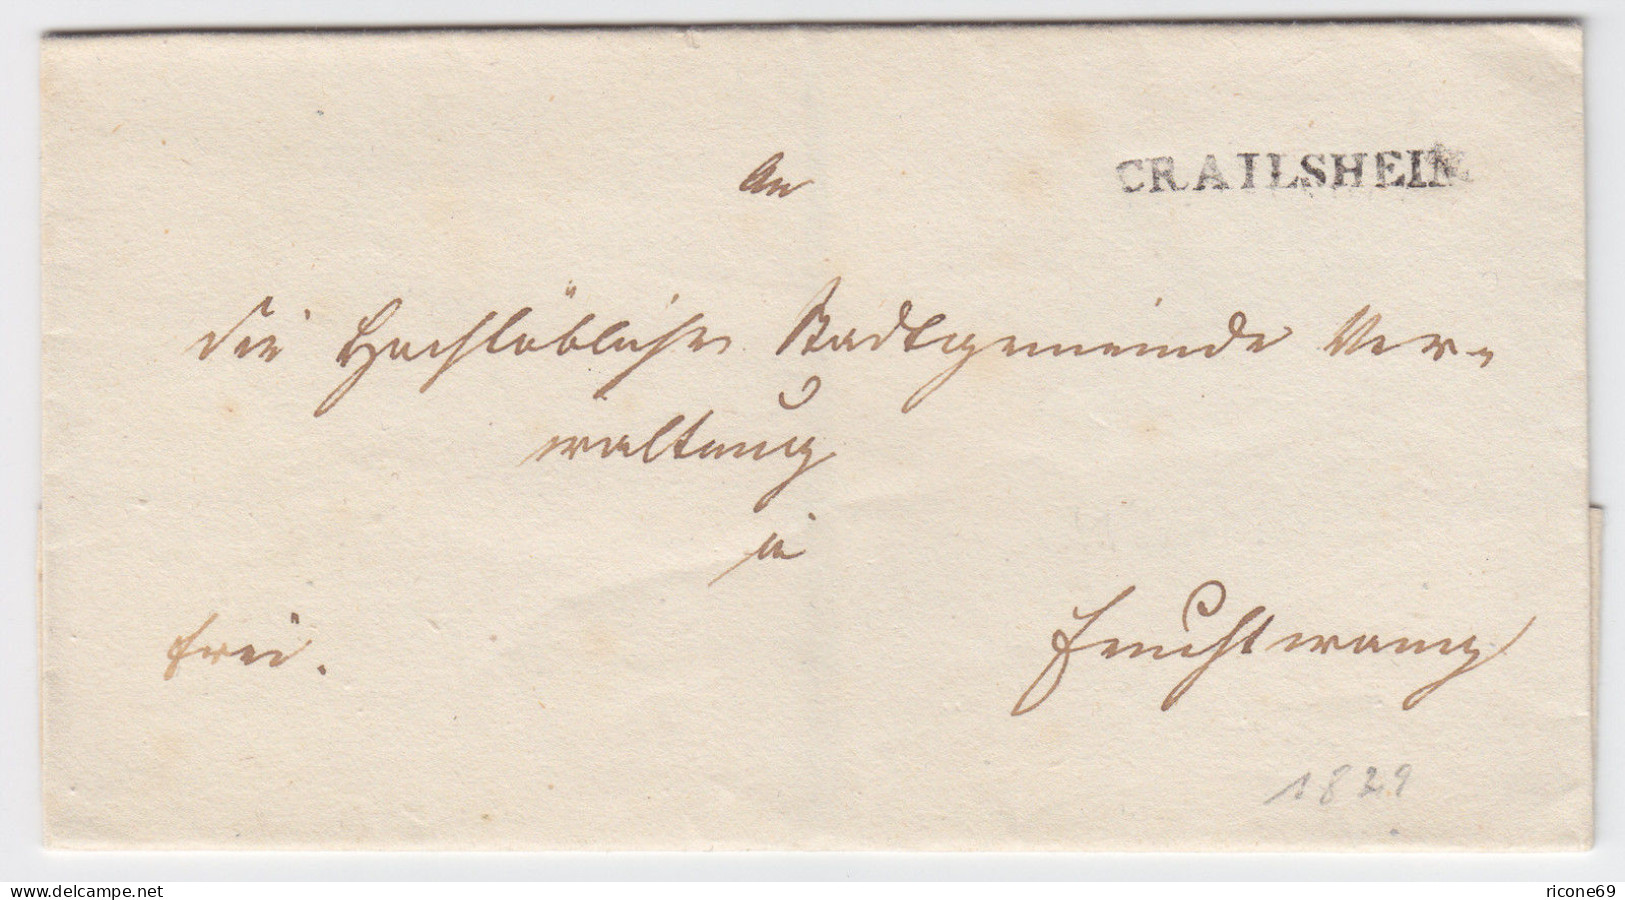 An
CRAILSHEIM
die Hochlöbliche Stadtgemeinde Ver-
waltung
in
frei.
Feuchtwang
1829
www.delcampe.net
ricone69